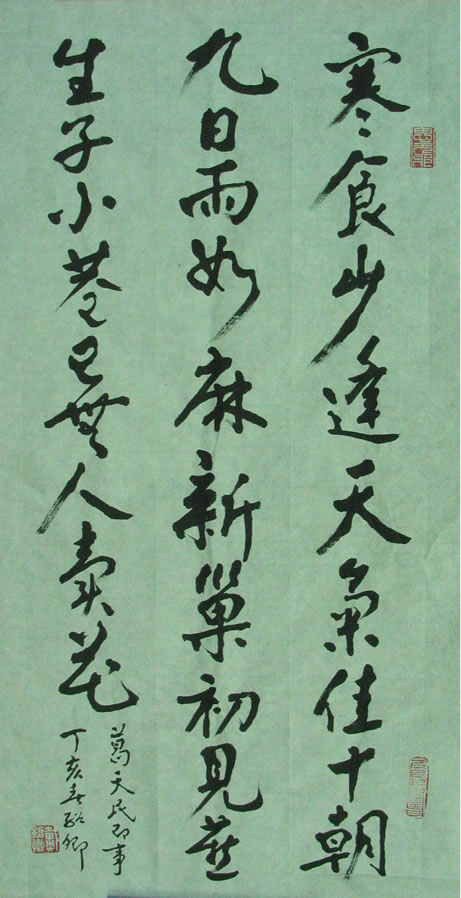 寒食少逢天氣佳十朝
九日雨如麻新巢初見燕
生子小巷已無人賣花
葛天民即事
丁亥春 卿